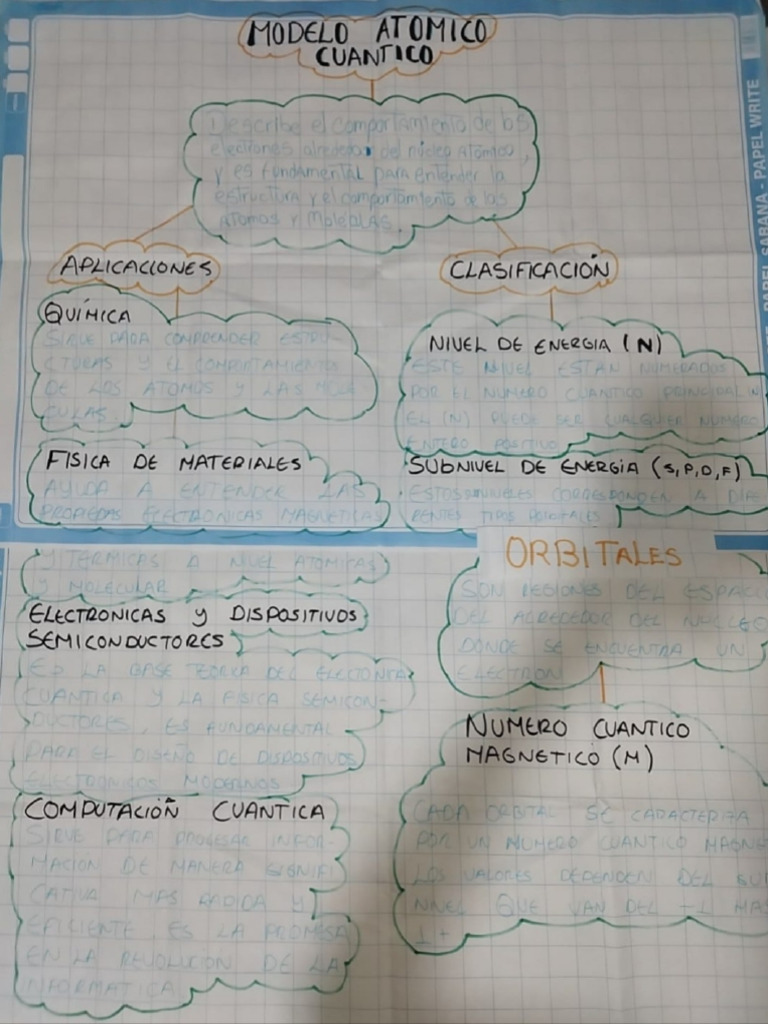 MODELO ATOMICO
CUANTICO
Describe el comportamiento de los
electrones alrededor del núcleo Atomico,
y es fundamental para entender la
estructura y el comportamiento de los
Atomos y
APLICACIONES
QUÍMICA
SIRVE PARA COMPRENDER ESTRU-
CTURAS Y EL COMPORTAMIENTO
DE LOS ATOMOS Y LAS MOLE
CULAS.
FISICA DE MATERIALES
AYUDA A ENTENDER LAS
ELECTRONICAS MAGNETICAS
Y TERMICAS A NIVEL ATOMICAS
Y MOLECULAR
ELECTRONICAS Y DISPOSITIVOS
SEMICONDUCTORES
ES LA BASE TEORICA DEL ELECTONICA
CUANTICA Y LA FISICA SEMICON-
DUCTORES, ES FUNDAMENTAL
PARA EL DISEÑO DE DISPOSITIVOS
ELECTRONICOS MODERNOS
COMPUTACIÓN CUANTICA
SIRVE PARA PROCESAR INFOR-
MACION DE MANERA SIGNIFI
CATIVA MAS RAPIDA Y
EFICIENTE ES LA PROMESA
EN LA REVOLUCION DE LA
INFORMATICA
CLASIFICACIÓN
NIVEL DE ENERGIA (N)
ESTE NIVEL ESTAN NUMERADOS
POR EL NUMERO CUANTICO PRINCIPAL N
EL (N) PUEDE SER CUALQUIER NUMERO
ENTERO POSITIVO
SUBNIVEL DE ENERGIA (S,P,D,F)
CORRESPONDEN A DIFE
RENTES TIPOS
ORBITALES
SON REGIONES DEL ESPACIO
DEL ALREDEDOR DEL NUCLEO
DONDE SE ENCUENTRA UN
ELECTRON
NUMERO CUANTICO
MAGNETICO (M)
CADA ORBITAL SE CARACTERIZA
POR UN NUMERO CUANTICO MAGNE
LOS VALORES DEPENDEN DEL SUB
NIVEL QUE VAN DEL -L MAS
L +
PAPEL SABANA - PAPEL WRITE